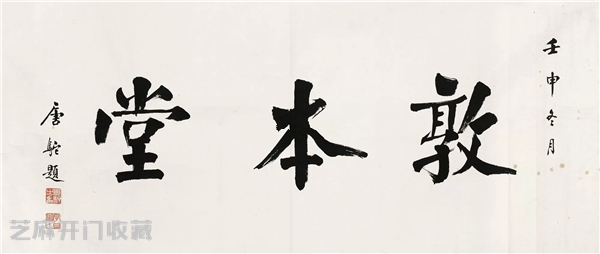 壬申冬月
敦本堂
唐駝題
芝麻开门收藏